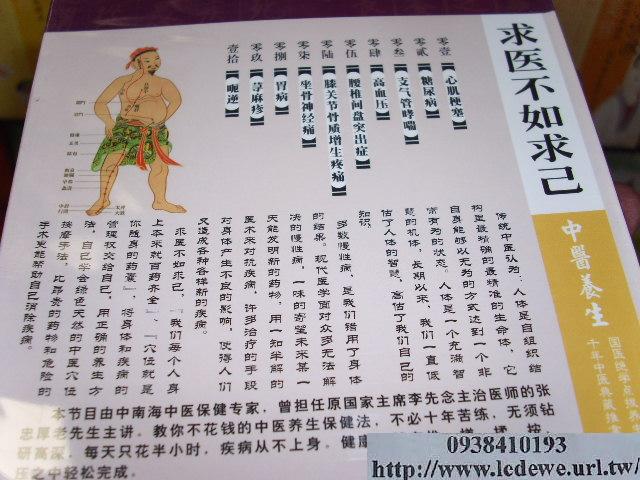 求医不如求己
中醫養生
零壹【心肌梗塞】
零贰【糖尿病】
零叁【支气管哮喘】
零肆【高血压】
零伍【腰椎间盘突出症】
零陆【膝关节骨质增生疼痛】
零柒【坐骨神经痛】
零捌【胃病】
零玖【荨麻疹】
壹拾【呃逆】
传统中医认为：人体是自组织结
构里最精确的最精准的生命体，它
自身能够以无为的方式达到一个非
常有为的状态。人体是一个充满智
慧的机体，长期以来，我们一直低
估了人体的智慧，高估了我们自己的
知识。
多数慢性病，是我们错用了身体
的结果。现代医学面对众多无法解
决的慢性病，一味的寄望未来某一
天能发明新的药物，用一知半解的
医术来对抗疾病，许多治疗的手段
对身体产生不良的影响，使得人们
又造成各种各样新的疾病。
求医不如求己，『我们每个人身
上本来就百药齐全』、『穴位就是
你随身的药囊』，将身体和疾病的
管理权交给自己，用正确的养生方
法，自己学会绿色天然的中医穴位
按摩手法，比昂贵的药物和危险的
手术更能帮助自己消除疾病。
本节目由中南海中医保健专家，曾担任原国家主席李先念主治医师的张
忠厚老先生主讲。教你不花钱的中医养生保健法，不必十年苦练，无须钻
研高深，每天只花半小时，疾病从不上身。健康
压之中轻松完成。
0938410193
http://www.lcdewe.url.tw/